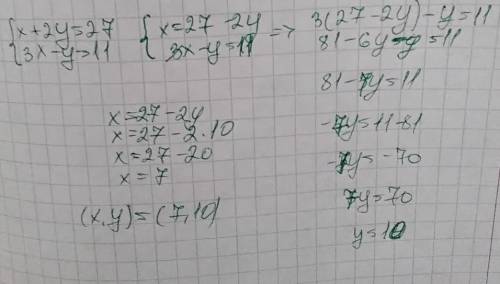 {x+2y=27 {x=27-2y => 3(27-2y)-y=11
{3x-y=11 {3x-y=11 81-6y-y=11
81-7y=11
-7y=11-81
-7y=-70
7y=70
y=10
x=27-2y
x=27-2·10
x=27-20
x=7
(x,y)=(7,10)